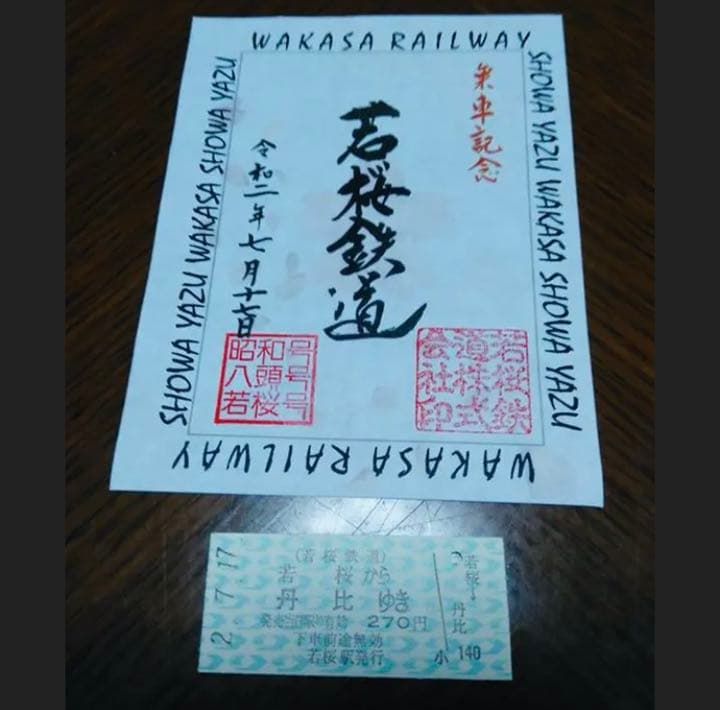 WAKASA RAILWAY
SHOWA YAZU WAKASA SHOWA YAZU
乗車記念
若桜鉄道
令和二年七月十七日
SHOWA YAZU WAKASA SHOWA YAZU
昭和号
八頭号
若桜号
若桜鉄
道株式
会社印
WAKASA RAILWAY
2.7.17
(若桜鉄道)
若桜から
丹比ゆき
発売当日限り有効 270円
下車前途無効
若桜駅発行
若桜→丹比
小 140